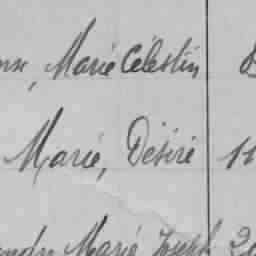 Marie Célestin
Marie, Désiré 11
Marie Joseph